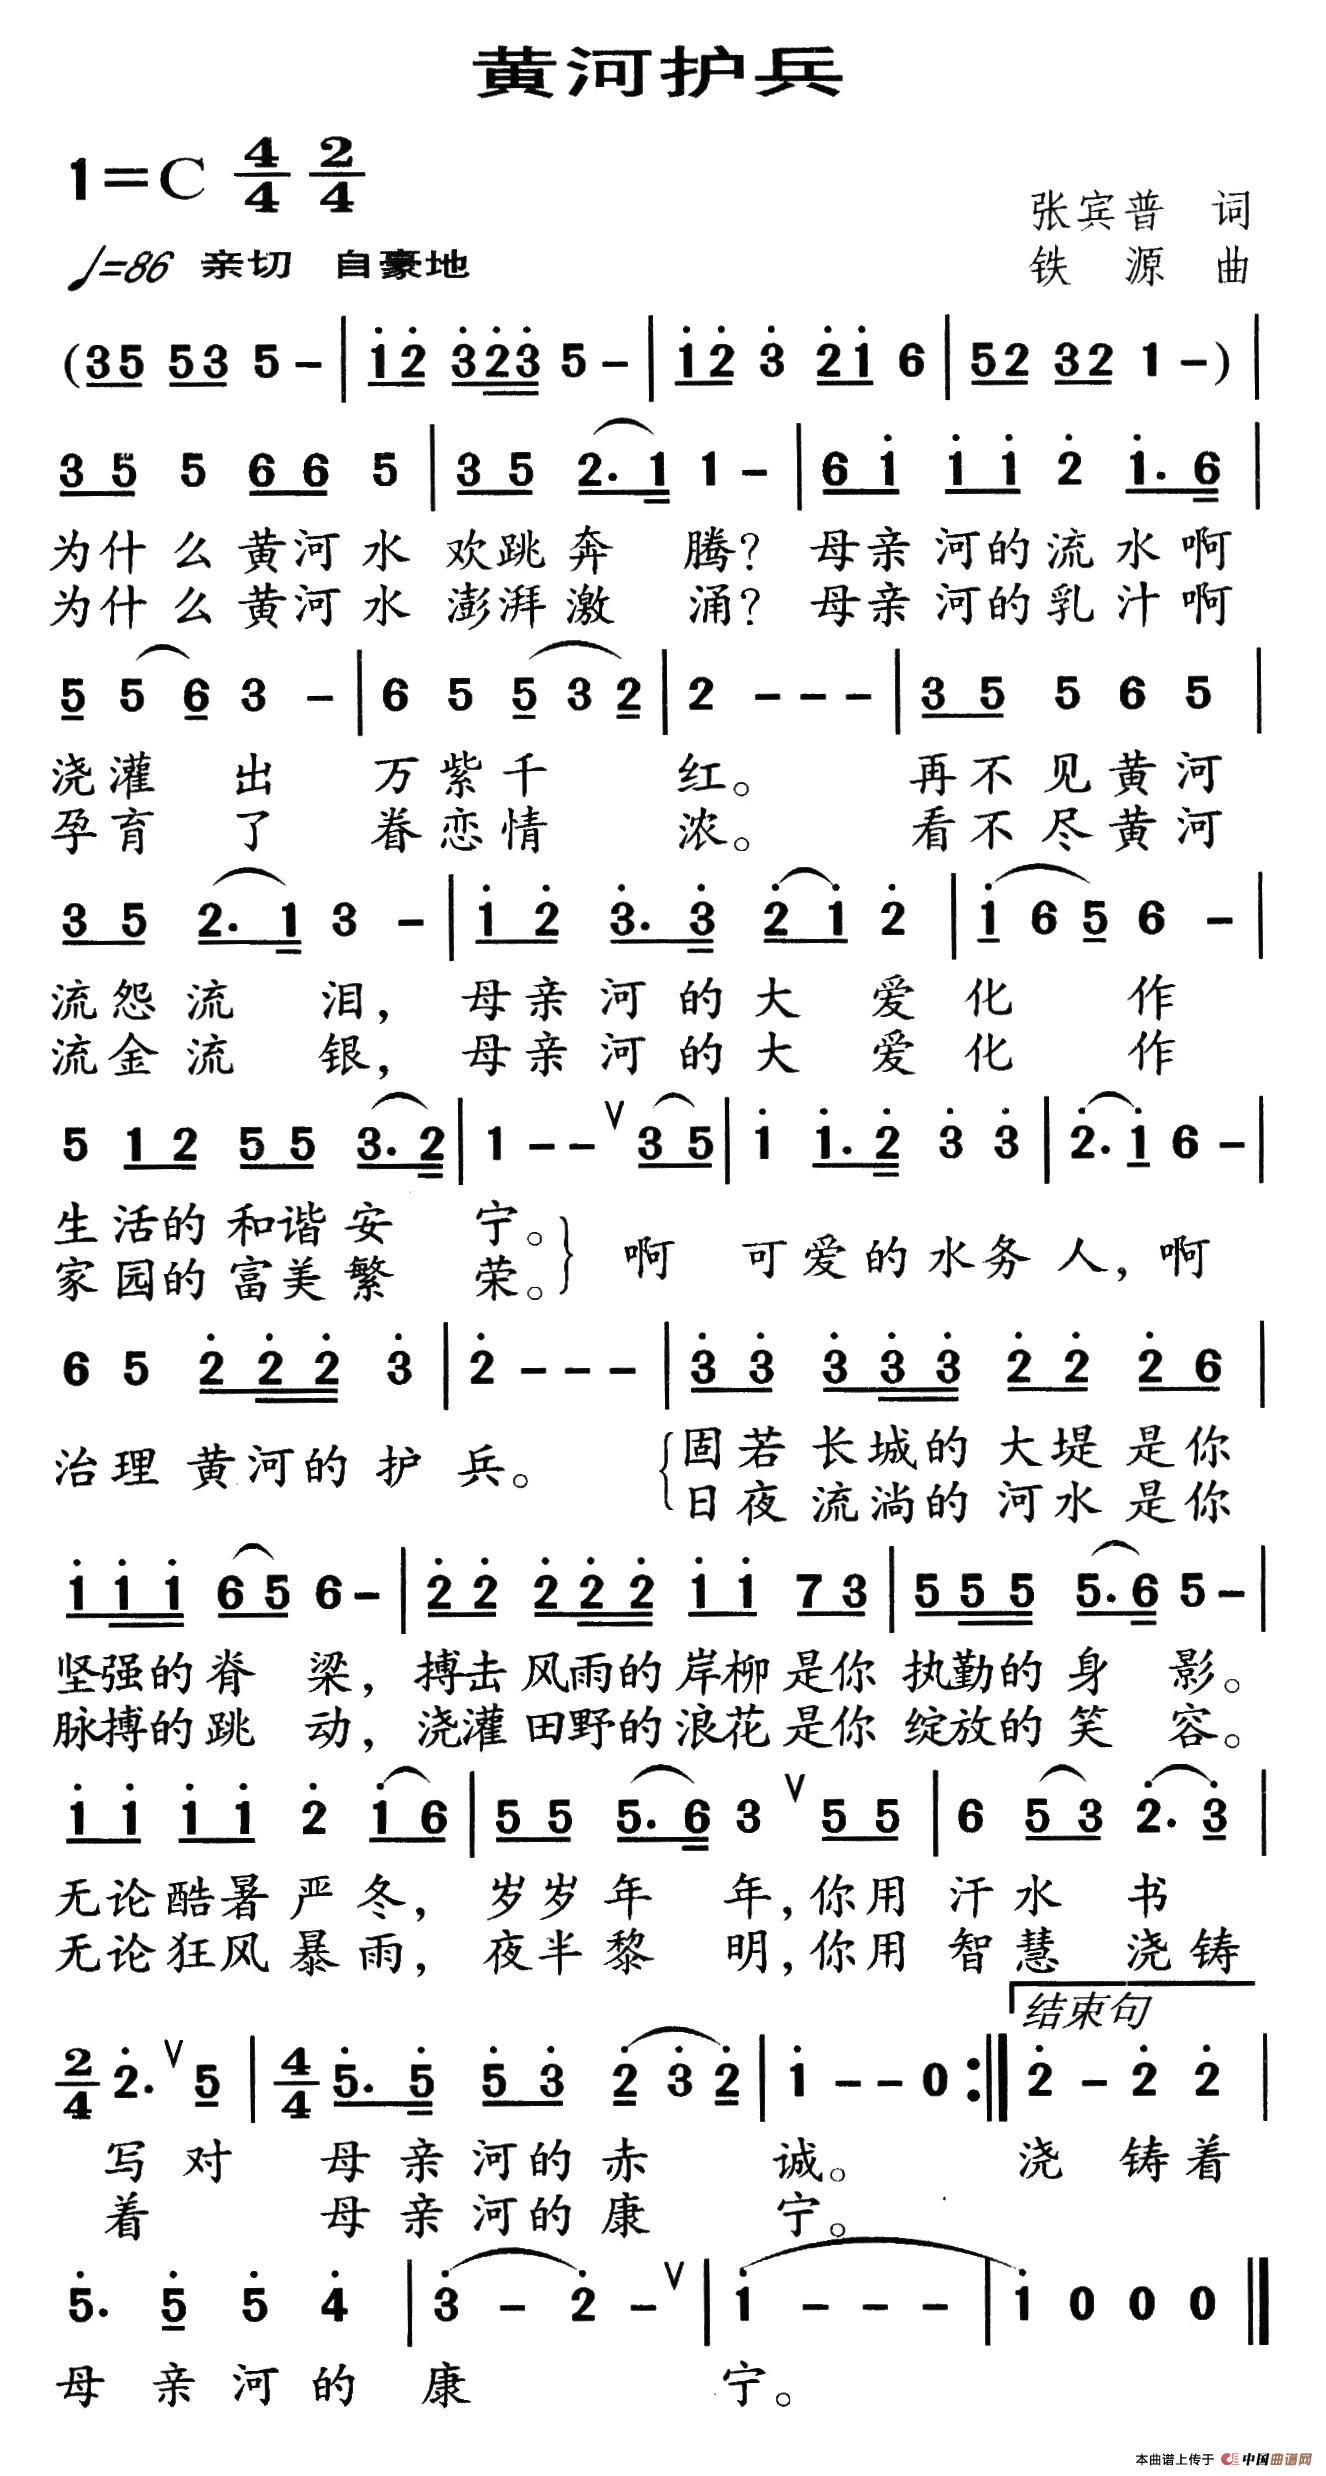 黄河护兵
1=C 4/4 2/4
张宾普 词
♩=86 亲切 自豪地
铁 源 曲
(35 53 5 - | i̇2̇ 3̇2̇3̇ 5 - | i̇2̇ 3̇ 2̇i̇ 6 | 52 32 1 -) |
3 5 5 6 6 5 | 3 5 2. 1 1 - | 6 i̇ i̇ i̇ 2̇ i̇. 6 |
为什么黄河水 欢跳奔 腾？ 母亲河的流水啊
为什么黄河水 澎湃激 涌？ 母亲河的乳汁啊
5 5 6 3 - | 6 5 5 3 2 | 2 - - - | 3 5 5 6 5 |
浇灌 出 万紫千 红。 再不见黄河
孕育 了 眷恋情 浓。 看不尽黄河
3 5 2. 1 3 - | i̇ 2̇ 3̇. 3̇ 2̇ i̇ 2̇ | i̇ 6 5 6 - |
流怨流 泪， 母亲河的大爱化 作
流金流 银， 母亲河的大爱化 作
5 1 2 5 5 3. 2 | 1 - - V 3 5 | i̇ i̇. 2̇ 3̇ 3̇ | 2̇. i̇ 6 - |
生活的和谐安 宁。
啊 可爱的水务人，啊
家园的富美繁 荣。
6 5 2̇ 2̇ 2̇ 3̇ | 2̇ - - - | 3̇ 3̇ 3̇ 3̇ 3̇ 2̇ 2̇ 2̇ 6 |
固若长城的大堤是你
治理黄河的护 兵。
日夜流淌的河水是你
i̇ i̇ i̇ 6 5 6 - | 2̇ 2̇ 2̇ 2̇ 2̇ i̇ i̇ 7 3 | 5 5 5 5. 6 5 - |
坚强的脊 梁，搏击风雨的岸柳是你执勤的身 影。
脉搏的跳 动，浇灌田野的浪花是你绽放的笑 容。
i̇ i̇ i̇ i̇ 2̇ i̇ 6 | 5 5 5. 6 3 V 5 5 | 6 5 3 2̇. 3̇ |
无论酷暑严冬， 岁岁年 年，你用汗水 书
无论狂风暴雨， 夜半黎 明，你用智慧 浇铸
结束句
2/4 2̇. V 5 | 4/4 5̇. 5̇ 5̇ 3̇ 2̇ 3̇ 2̇ | i̇ - - 0 :‖ 2̇ - 2̇ 2̇ |
写 对 母亲河的赤 诚。 浇 铸着
着 母亲河的康 宁。
5̇. 5̇ 5̇ 4̇ | 3̇ - 2̇ - V | i̇ - - - | i̇ 0 0 0 ‖
母 亲河的 康 宁。
本曲谱上传于 中国曲谱网